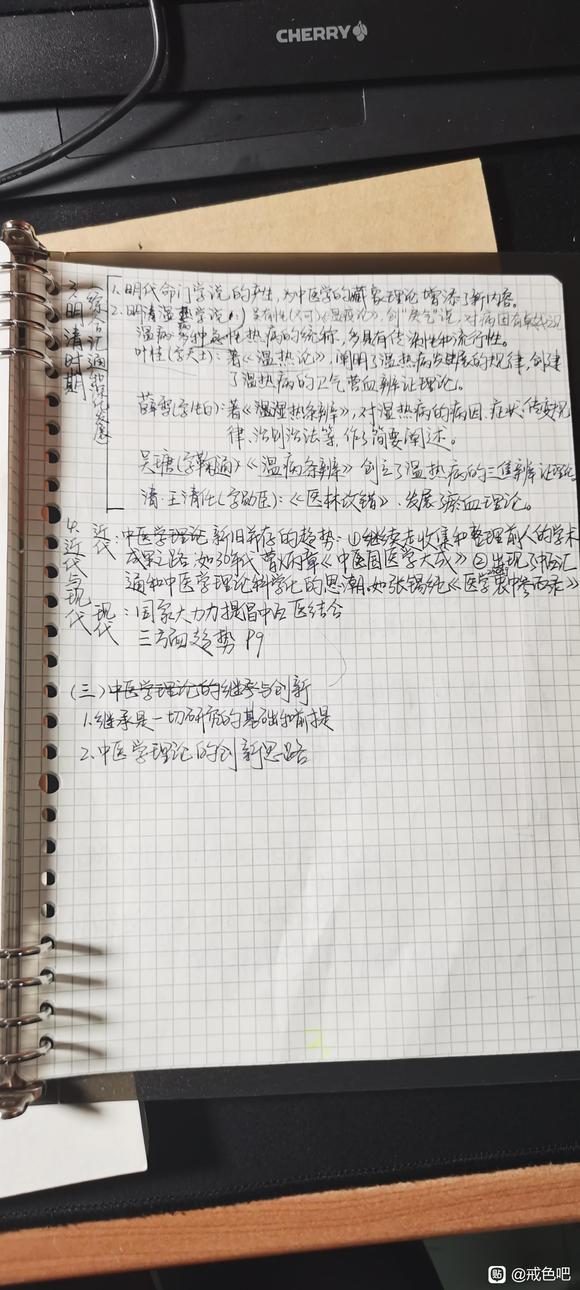 CHERRY
3.明清时期
(综合汇通和深化发展)
1.明代命门学说的产生,为中医学的藏象理论增添了新内容。
2.明清温热学说 吴有性(又可)《温疫论》,创"戾气"说,对病因有卓越之见
温病:多种急性热病的统称,多具有传染性和流行性。
叶桂(字天士):著《温热论》,阐明了温热病发生发展的规律,创建
了温热病的卫气营血辨证理论。
薛雪(字生白):著《湿热条辨》,对湿热病的病因、症状、传变规
律、治则治法等,作了简要阐述。
吴瑭(字鞠通)《温病条辨》创立了温热病的三焦辨证理论
清·王清任(字勋臣):《医林改错》,发展了瘀血理论。
4.近代与现代
近代:中医学理论新旧并存的趋势:①继续走收集和整理前人的学术
成果之路,如30年代曹炳章《中国医学大成》②出现了中西汇
通和中医学理论科学化的思潮,如张锡纯《医学衷中参西录》
现代:国家大力提倡中西医结合
三方面趋势 P9
(三)中医学理论的继承与创新
1.继承是一切研究的基础和前提
2.中医学理论的创新思路
贴 @戒色吧